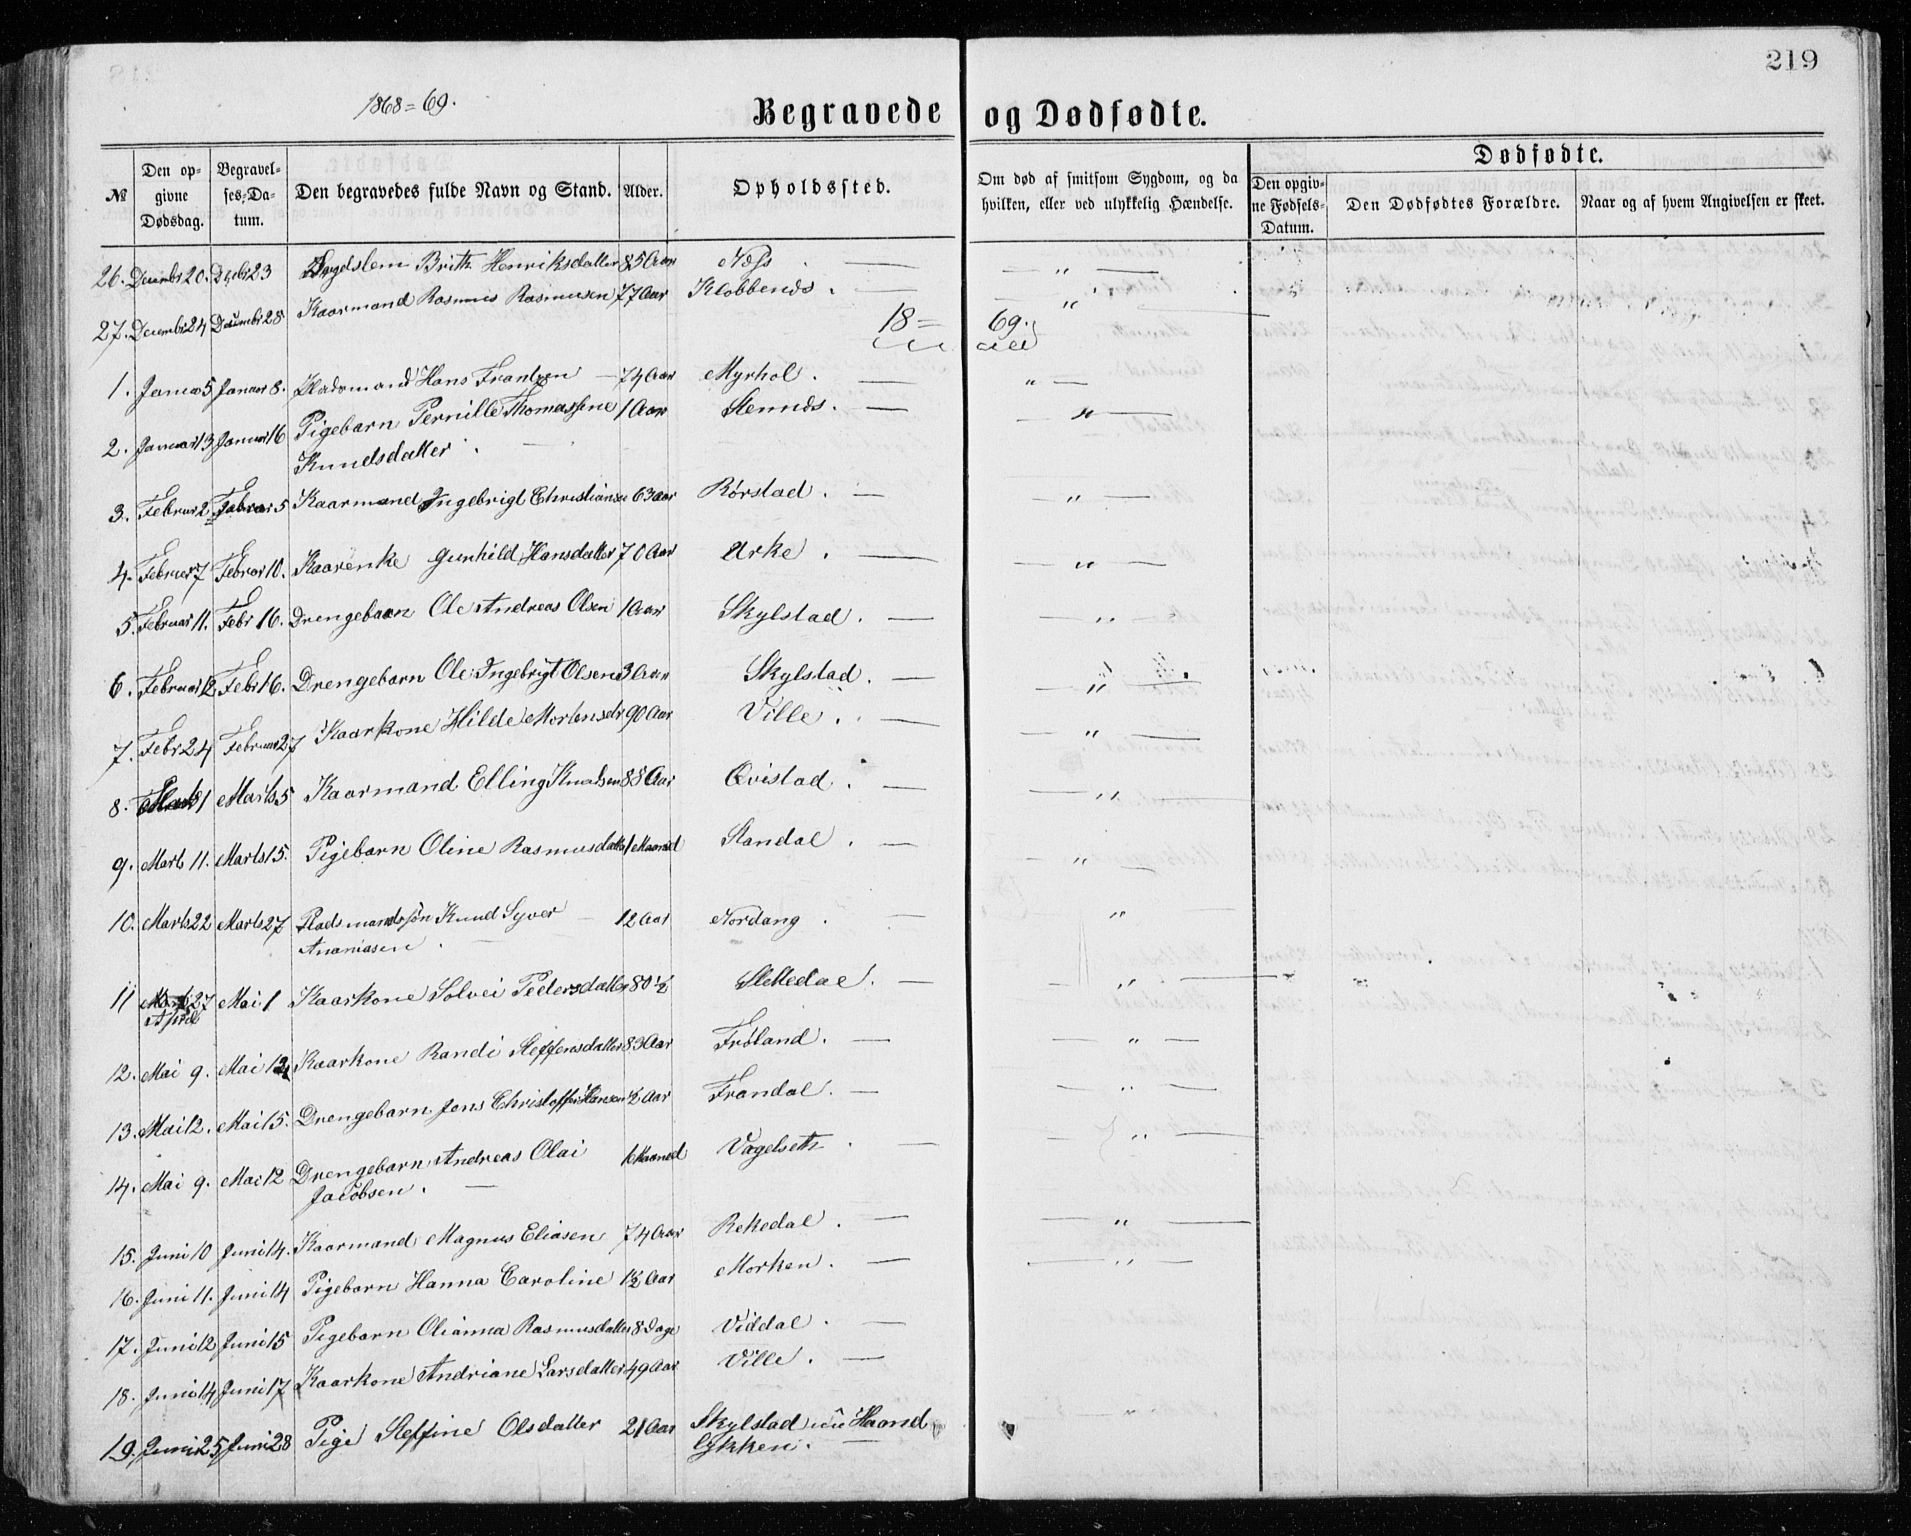 219
1868=69.
Begravede og Dødfødte.
№ Den opgivne Dødsdag. Begravelses-Datum. Den begravedes fulde Navn og Stand. Alder. Opholdssted. Om død af smitsom Sygdom, og da hvilken, eller ved ulykkelig Hændelse. Dødfødte. Den opgivne Fødsels-Datum. Den Dødfødtes Forældre. Naar og af hvem Angivelsen er skeet.
26. Decembr 20. Decbr 23 Lægdslem Brith Henriksdatter 85 Aar Næss. — " —
27. Decembr 24 Decembr 28 Kaarmand Rasmus Rasmusen 77 Aar Klobbenes. — " —
18=69.
1. Januar 5 Januar 8. Pladsmand Hans Frantzen — 74 Aar Myrhol. — " —
2. Januar 13 Januar 16 Pigebarn Pernille Thomassine 1 Aar Stennes. — " —
Knudsdatter. —
3. Februar 2 Februar 5 Kaarmand Ingebrigt Christiansen 63 Aar Rørstad. — " —
4. Februar 7 Februar 10. Kaarenke Gunhild Hansdatter 70 Aar Urke. — " —
5. Februar 11. Febr 16. Drengebarn Ole Andreas Olsen 1 Aar Skylstad. — " —
6. Februar 12 Febr 16. Drengebarn Ole Ingebrigt Olsen 3 Aar Skylstad. — " —
7. Febr 24 Februar 27 Kaarkone Hilde Mortensdr 90 Aar Ville. — " —
8. Marts 1 Marts 5 Kaarmand Elling Knudsen 88 Aar Qvistad. — " —
9. Marts 11. Marts 15. Pigebarn Oline Rasmusdatter 1 Maaned Standal. — " —
10. Marts 22 Marts 27 Pladsmandssøn Knud Syver — 12 Aar Nordang. — "
Ananiasen. —
11 April 27 Mai 1 Kaarkone Solvei Pedersdatter 80 ½ Slettedal. — " —
12. Mai 9. Mai 12 Kaarkone Randi Steffensdatter 83 Aar Frøland. — " —
13. Mai 12. Mai 15. Drengebarn Jens Christoffer Hansen ½ Aar Frandal. — " —
14. Mai 9. Mai 12 Drengebarn Andreas Olai 6 Maaned Vagelseth. — " —
Jacobsen. —
15. Juni 10 Juni 14. Kaarmand Magnus Eliasen 74 Aar Rekedal. — " —
16. Juni 11. Juni 14 Pigebarn Hanna Caroline 1½ Aar Morken. — " —
17. Juni 12 Juni 15 Pigebarn Olianna Rasmusdatter 8 Dage Viddal. —
18. Juni 14 Juni 17 Kaarkone Andriane Larsdatter 49 Aar Ville. —
19. Juni 25 Juni 28 Pige Steffine Olsdatter 21 Aar Skylstad Haand
lykken. —